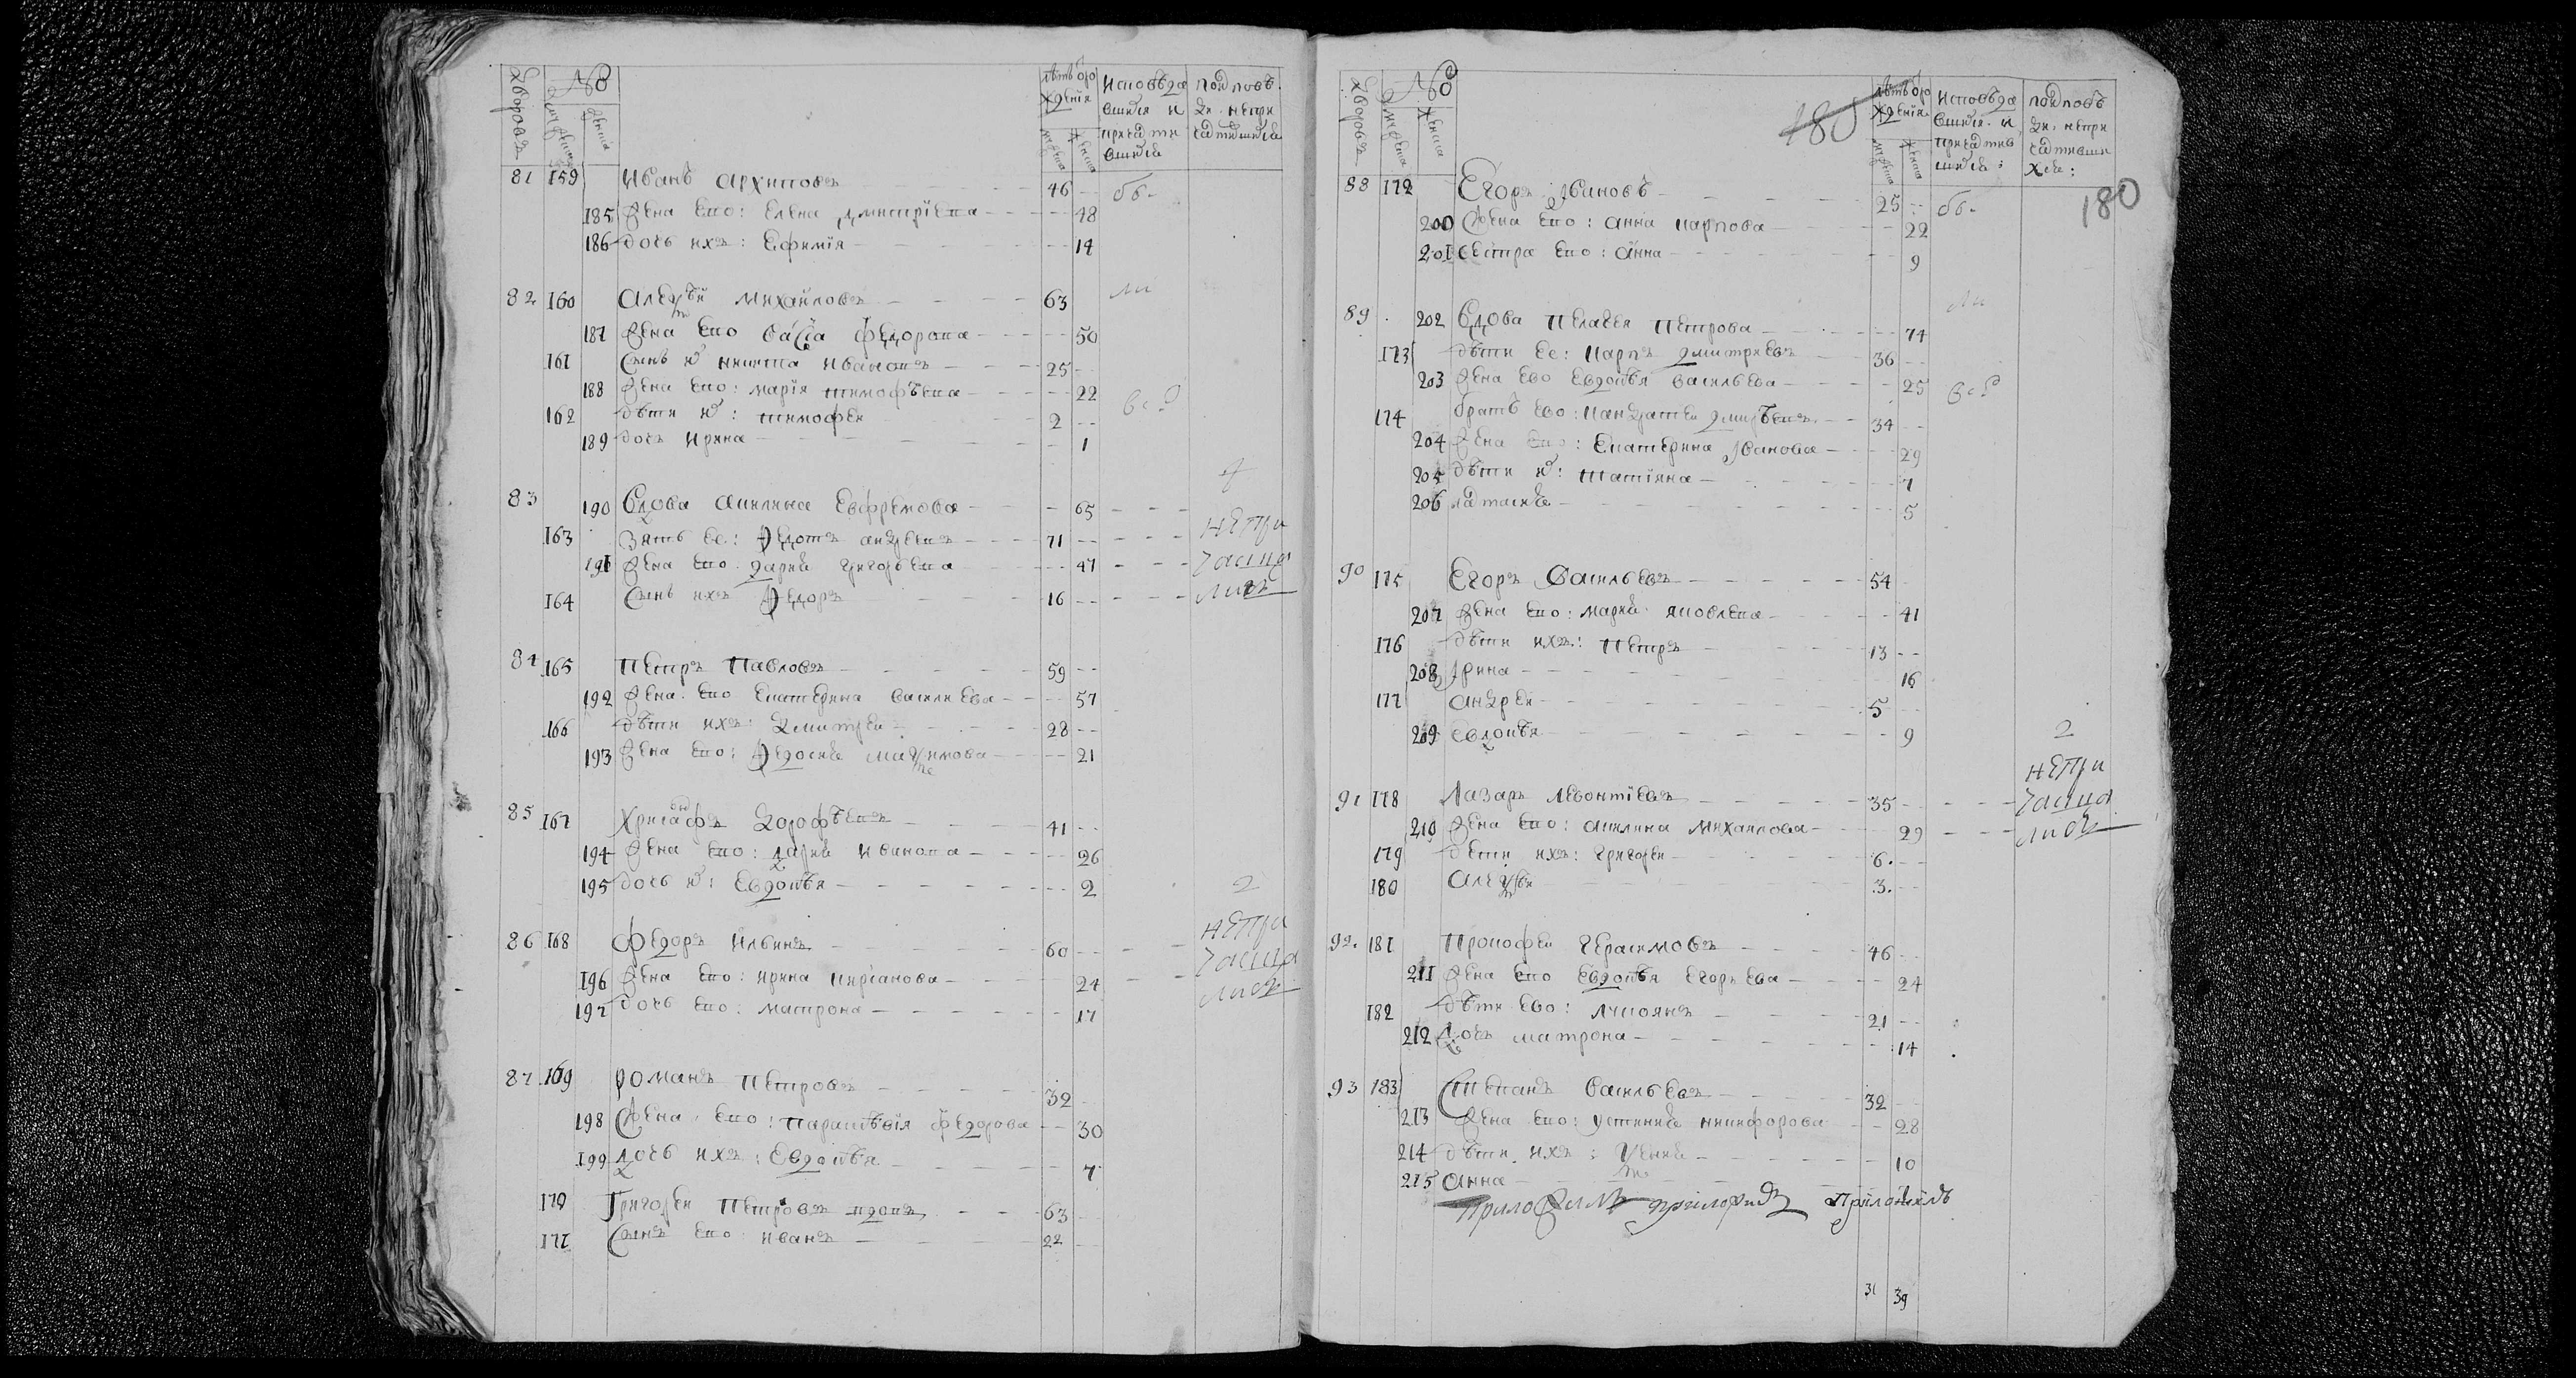 Дворовъ № лѣтъ от рожденія Исповѣдавшихся и причастившихся По исповѣди непричастившихся
81 159 Иванъ Архиповъ 46 бы-
185 Жена ево: Елена Дмитріева 48
186 дочь ихъ: Ефимія 14
82 160 Алексѣй Михайловъ 63 ли
187 Жена ево Васса Федорова 50
161 Сынъ их Никита Ивановъ 25
188 Жена ево: Марія Тимофѣева 22 всѣ
162 дѣти их: Тимофей 2
189 дочь Ирина 1
4
83 190 Вдова Акилина Евфремова 65
163 Зять ее: Федотъ Андреевъ 71 непри
191 Жена ево Дарья Григорьева 47 частя
164 Сынъ ихъ Федоръ 16 лись
84 165 Петръ Павловъ 59
192 Жена ево Екатерина Василиева 57
166 дѣти ихъ: Дмитрей 28
193 Жена ево: Федосья Максимова 21
85 167 Христофоръ Дорофѣевъ 41
194 Жена ево: Дарья Иванова 26
195 дочь их: Евдокѣя 2
2
86 168 Федоръ Ильинъ 60 непри
196 Жена ево: Ирина Кирьанова 24 частя
197 дочь ево: Матрона 17 лись
87 169 Романъ Петровъ 32
198 Жена ево: Параскѣвія Федорова 30
199 дочь ихъ: Евдокѣя 7
170 Григорей Петровъ вдовъ 63
171 Сынъ ево Иванъ 22
Дворовъ № лѣтъ от рожденія Исповѣдавшихся и причастившихся По исповѣди непричастившихся:
180
88 172 Егоръ Ивановъ 25 бы- 180
200 Жена ево: Анна Карпова 22
201 Сестра ево: Анна 9
ли
89 202 Вдова Пелагея Петрова 74
173 дѣти ее: Карпъ Дмитриевъ 36
203 Жена ево Евдокѣя Васильева 25 всѣ
174 братъ ево: Кандратей Дмитрѣевъ 34
204 Жена ево: Екатерина Иванова 29
205 дѣти их: Татіяна 7
206 Наталья 5
90 175 Егоръ Васильевъ 54
207 Жена ево: Марья Яковлева 41
176 дѣти ихъ: Петръ 13
208 Ирина 16
177 Андрей 5
209 Евдокѣя 9 2
непри
91 178 Лазаръ Леонтіевъ 35 частя
210 Жена ево: Акилина Михаилова 29 лись
179 дети ихъ: Григорей 6.
180 Алексѣй 3.
92. 181 Прокофей Герасимовъ 46
211 Жена ево Евдокѣя Егорьева 24
182 дѣти ево: Лукоянъ 21
212 Дочь Матрона 14
93 183 Степанъ Васильевъ 32
213 Жена ево: Устинья Никифорова 28
214 дѣти ихъ: Ксенья 10
215 Анна 1
приложилъ приложилъ приложилъ
31 39